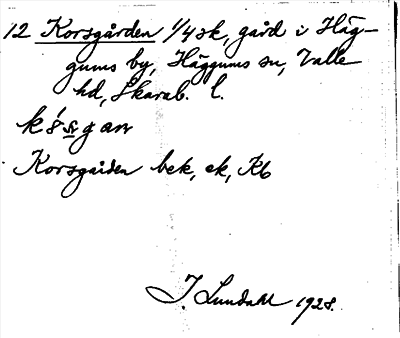 12 Korsgården 1/4 sk, gård i Häg-
gums by, Häggums sn, Valle
hd, Skarab. l.
Korsgården bek, ek, Kb
J. Lundahl 1928.